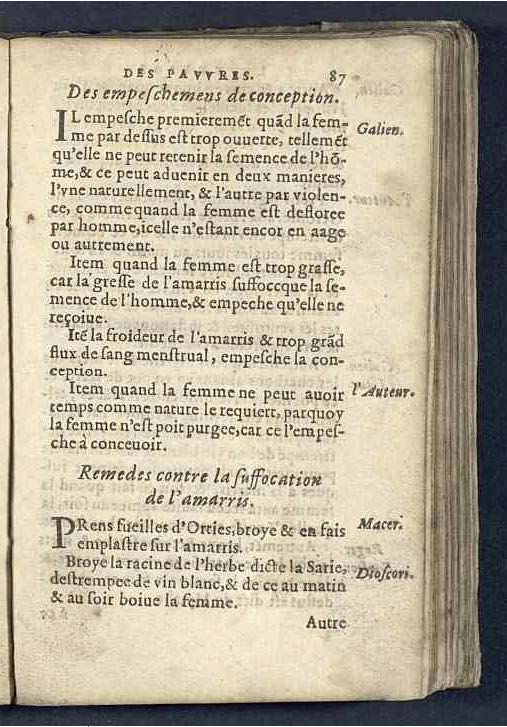 DES PAVVRES. 87
Des empeſchemens de conception.
IL empeſche premieremēt quād la fem-
me par deſſus eſt trop ouuerte, tellemēt
qu'elle ne peut retenir la ſemence de l'hō-
me,& ce peut aduenir en deux manieres,
l'vne naturellement, & l'autre par violen-
ce, comme quand la femme eſt defloree
par homme,icelle n'eſtant encor en aage
ou autrement.
Galien.
Item quand la femme eſt trop graſſe,
car la greſſe de l'amarris ſuffoccque la ſe-
mence de l'homme,& empeche qu'elle ne
reçoiue.
Itē la froideur de l'amarris & trop grād
flux de ſang menſtrual, empeſche la con-
ception.
Item quand la femme ne peut auoir
temps comme nature le requiert, parquoy
la femme n'eſt poīt purgee,car ce l'empeſ-
che à conceuoir.
l'Auteur.
Remedes contre la ſuffocation
de l'amarris.
PRens fueilles d'Orties,broye & en fais
emplaſtre ſur l'amarris.
Macer.
Broye la racine de l'herbe dicte la Sarie,
deſtrempee de vin blanc,& de ce au matin
& au ſoir boiue la femme.
Dioſcori.
Autre